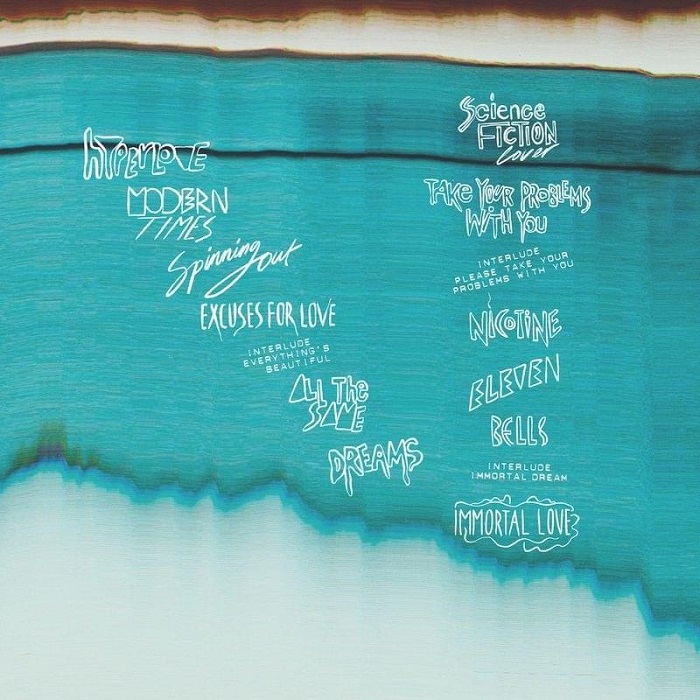 HYPERLOVE
MODERN
TIMES
Spinning out
EXCUSES FOR LOVE
INTERLUDE
EVERYTHING'S
BEAUTIFUL
ALL The
SAME
DREAMS
Science
FICTION
Lover
TAKE YOUR PROBLEMS
WITH YOU
INTERLUDE
PLEASE TAKE YOUR
PROBLEMS WITH YOU
NICOTINE
ELEVEN
BELLS
INTERLUDE
IMMORTAL DREAM
IMMORTAL LOVE